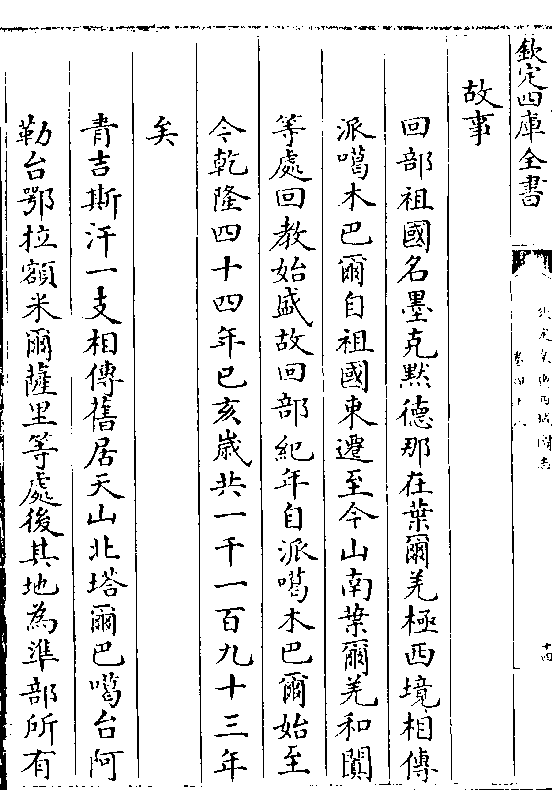 欽定四庫全書
欽定皇輿西域圖志
卷四十八
十四
故事
回部祖國名墨克默德那在葉爾羌極西境相傳
派噶木巴爾自祖國東遷至今山南葉爾羌和闐
等處回教始盛故回部紀年自派噶木巴爾始至
今乾隆四十四年已亥歲共一千一百九十三年
矣
青吉斯汗一支相傳舊居天山北塔爾巴噶台阿
勒台鄂拉額米爾薩里等處後其地為準部所有